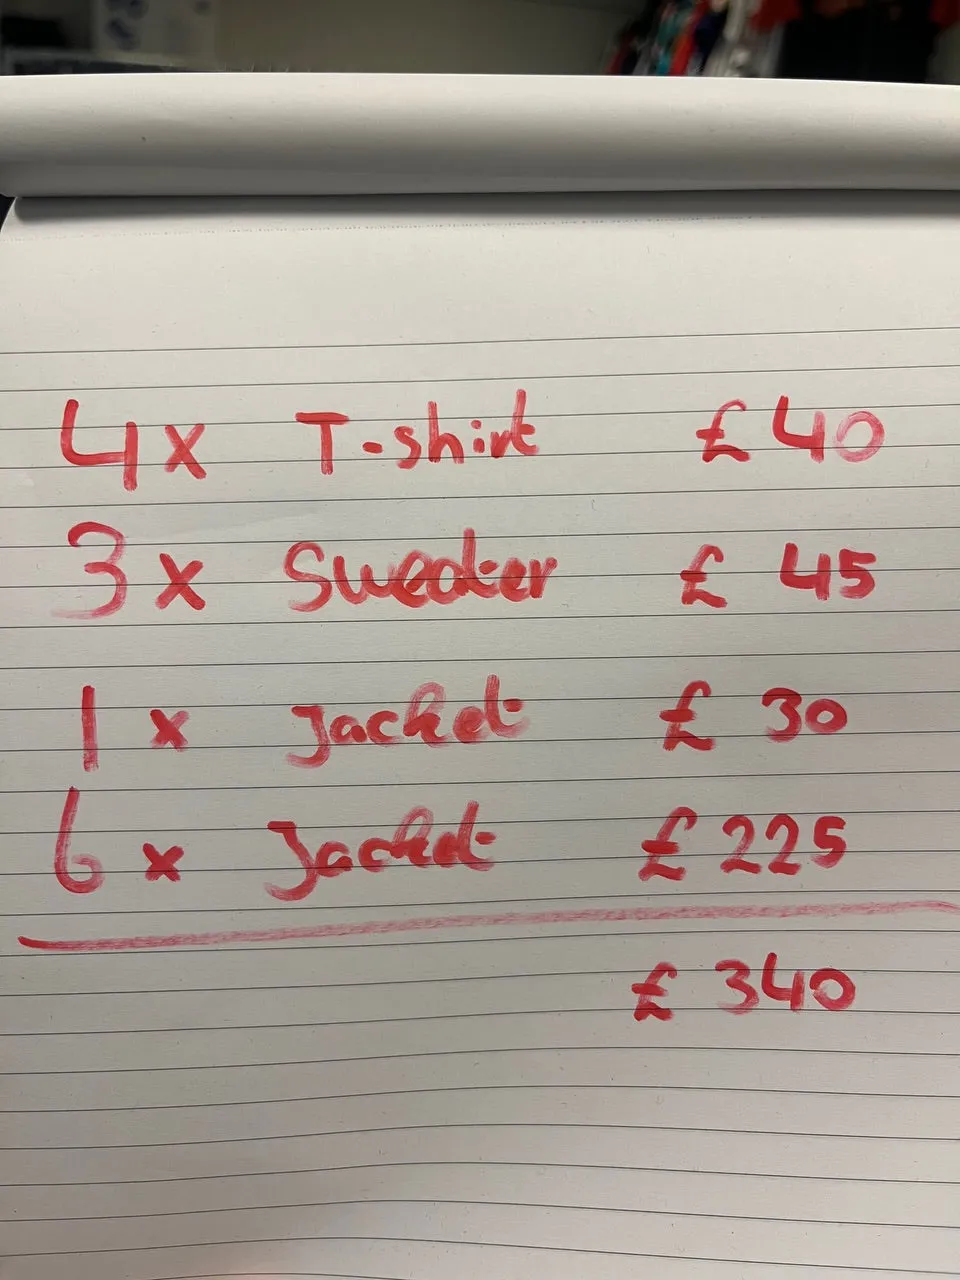 4 x T-shirt £40
3 x Sweater £45
1 x Jacket £30
6 x Jacket £225
£340